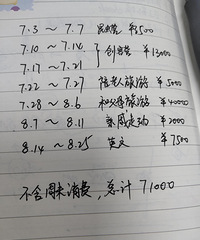 7.3 ~ 7.7 营 ¥3500
7.10 ~ 7.14
7.17 ~ 7.21 } 创意营 ¥13000
7.22 ~ 7.27 陪老人旅游 ¥5000
7.28 ~ 8.6 旅游 ¥40000
8.7 ~ 8.11 亲戚走动 ¥2000
8.14 ~ 8.25 英文 ¥7500
不含周末消费，总计 71000